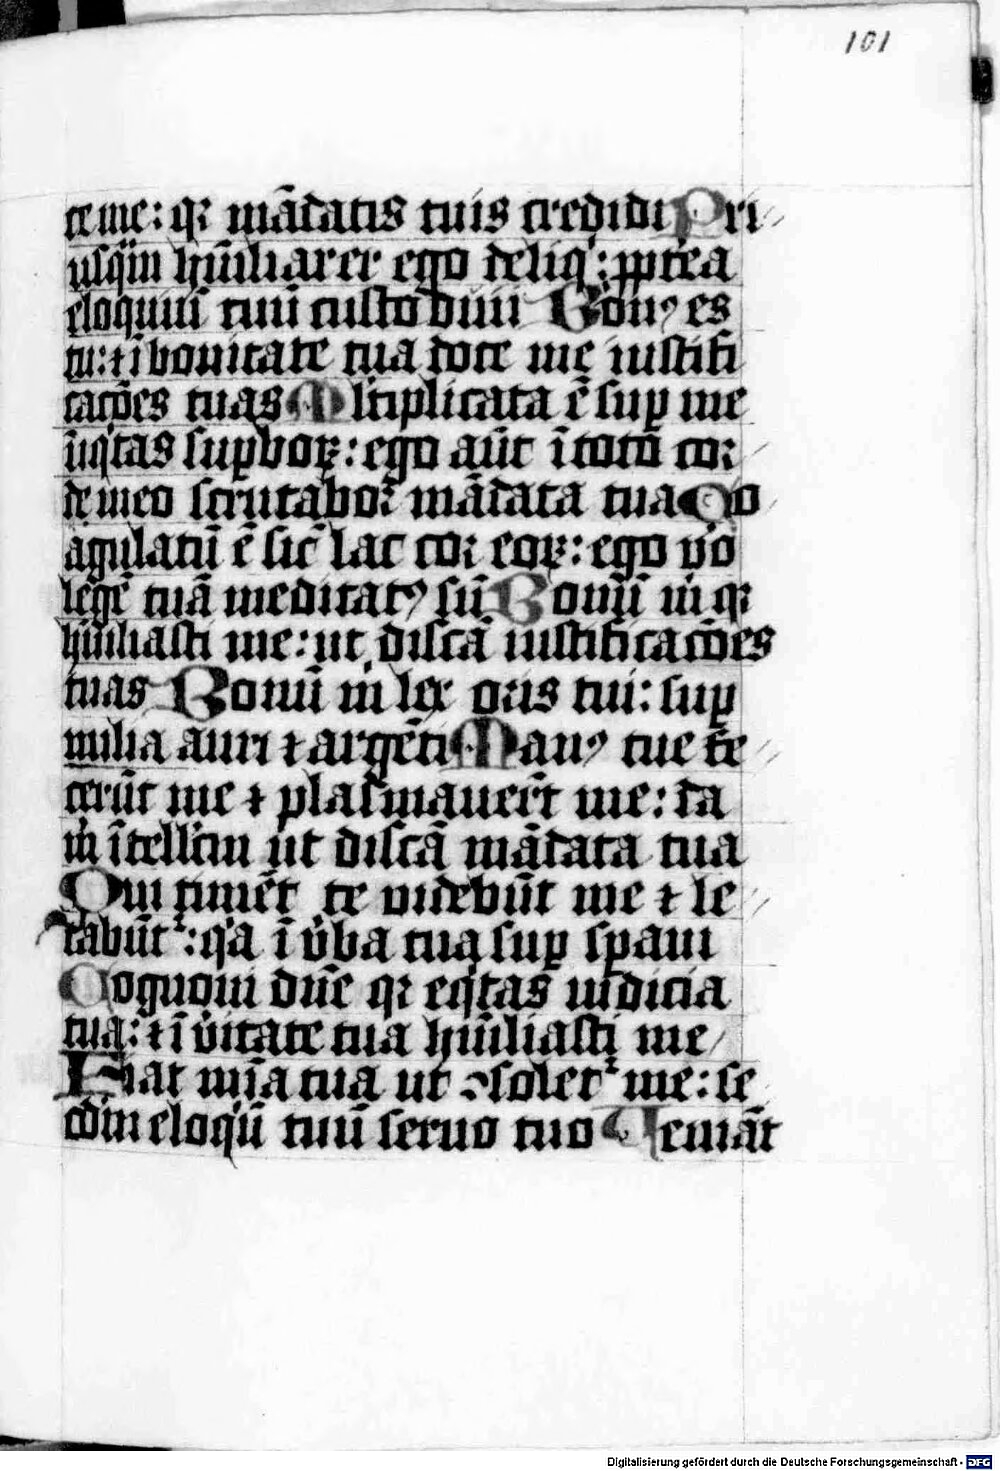 101
ce me: qr mādatis tuis credidi Pri
usq̄m hūiliarer ego deliq̄: ꝓptea
eloquiū tuū custodiui Bonꝰ es
tu: ⁊ ī bonitate tua doce me iustifi
catōes tuas Mltiplicata ē suꝑ me
īiqtas suꝑboꝝ: ego aūt ī toto cor
de meo scrutabor mādata tua Co
agulatū ē sic̄ lac cor eoꝝ: ego vo
legē tuā meditatꝰ sū Bonū m̄ qr
hūiliasti me: ut discā iustificatōes
tuas Bonū m̄ lex oris tui: suꝑ
milia auri ⁊ argēti Manꝰ tue fe
cerūt me ⁊ plasmauerūt me: da
m̄ ītellc̄m ut discā mādata tua
Qui timēt te videbūt me ⁊ le
tabūt᷑: qa ī v̄ba tua suꝑ spaui
Cognoui dn̄e qr eqtas iudicia
tua: ⁊ ī v̄itate tua hūiliasti me
Fiat mīa tua ut ꝯsolet᷑ me: se
cdm̄ eloqū tuū seruo tuo Veniāt
Digitalisierung gefördert durch die Deutsche Forschungsgemeinschaft - DFG